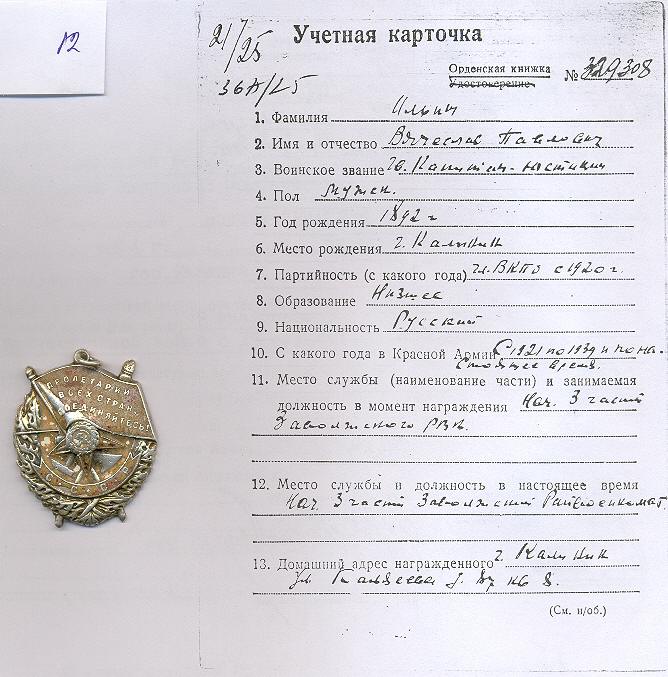 12
21/7
25
Учетная карточка
36А/25
Орденская книжка
Удостоверение
№ 329308
1. Фамилия Ильин
2. Имя и отчество Вячеслав Павлович
3. Воинское звание Гв. Капитан-юстиции
4. Пол мужск.
5. Год рождения 1892 г
6. Место рождения г. Калинин
7. Партийность (с какого года) чл. ВКПб с 1920 г.
8. Образование Низшее
9. Национальность Русский
10. С какого года в Красной Армии С 1921 по 1939 и по на-
стоящее время.
11. Место службы (наименование части) и занимаемая
должность в момент награждения Нач. 3 части
Заволжского РВК.
12. Место службы и должность в настоящее время
Нач. 3 части Заволжский Райвоенкомат
13. Домашний адрес награжденного г. Калинин
ул кв 8.
(См. н/об.)
ПРОЛЕТАРИИ
ВСЕХ СТРАН
СОЕДИНЯЙТЕСЬ!
С С С Р